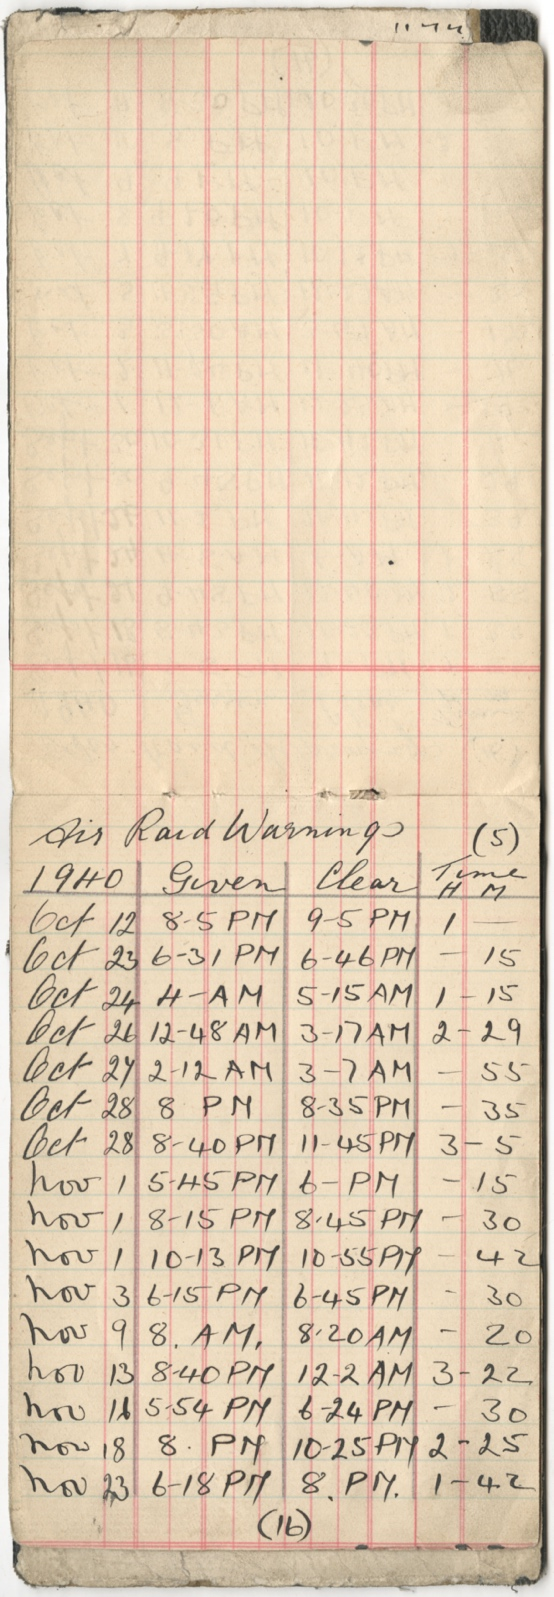 Air Raid Warnings (5)
1940 Given Clear Time
H M
Oct 12 8-5 PM 9-5 PM 1 —
Oct 23 6-31 PM 6-46 PM - 15
Oct 24 4-AM 5-15 AM 1-15
Oct 26 12-48 AM 3-17 AM 2-29
Oct 27 2-12 AM 3-7 AM - 55
Oct 28 8 PM 8-35 PM - 35
Oct 28 8-40 PM 11-45 PM 3-5
Nov 1 5-45 PM 6-PM - 15
Nov 1 8-15 PM 8.45 PM - 30
Nov 1 10-13 PM 10-55 PM - 42
Nov 3 6-15 PM 6-45 PM - 30
Nov 9 8. AM. 8.20 AM - 20
Nov 13 8-40 PM 12-2 AM 3-22
Nov 16 5-54 PM 6-24 PM - 30
Nov 18 8. PM 10-25 PM 2-25
Nov 23 6-18 PM 8. PM. 1-42
(16)